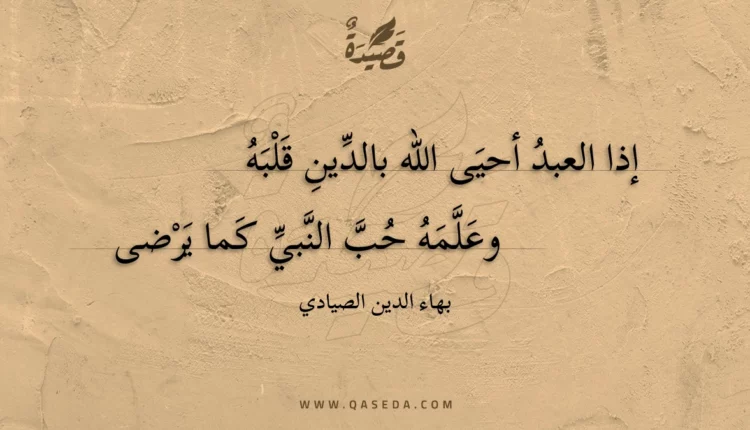 قَصِيدَةٌ
إذا العبدُ أحيَى الله بالدِّينِ قَلْبَهُ
وعَلَّمَهُ حُبَّ النَّبيِّ كَما يَرْضى
بهاء الدين الصيادي
WWW.QASEDA.COM